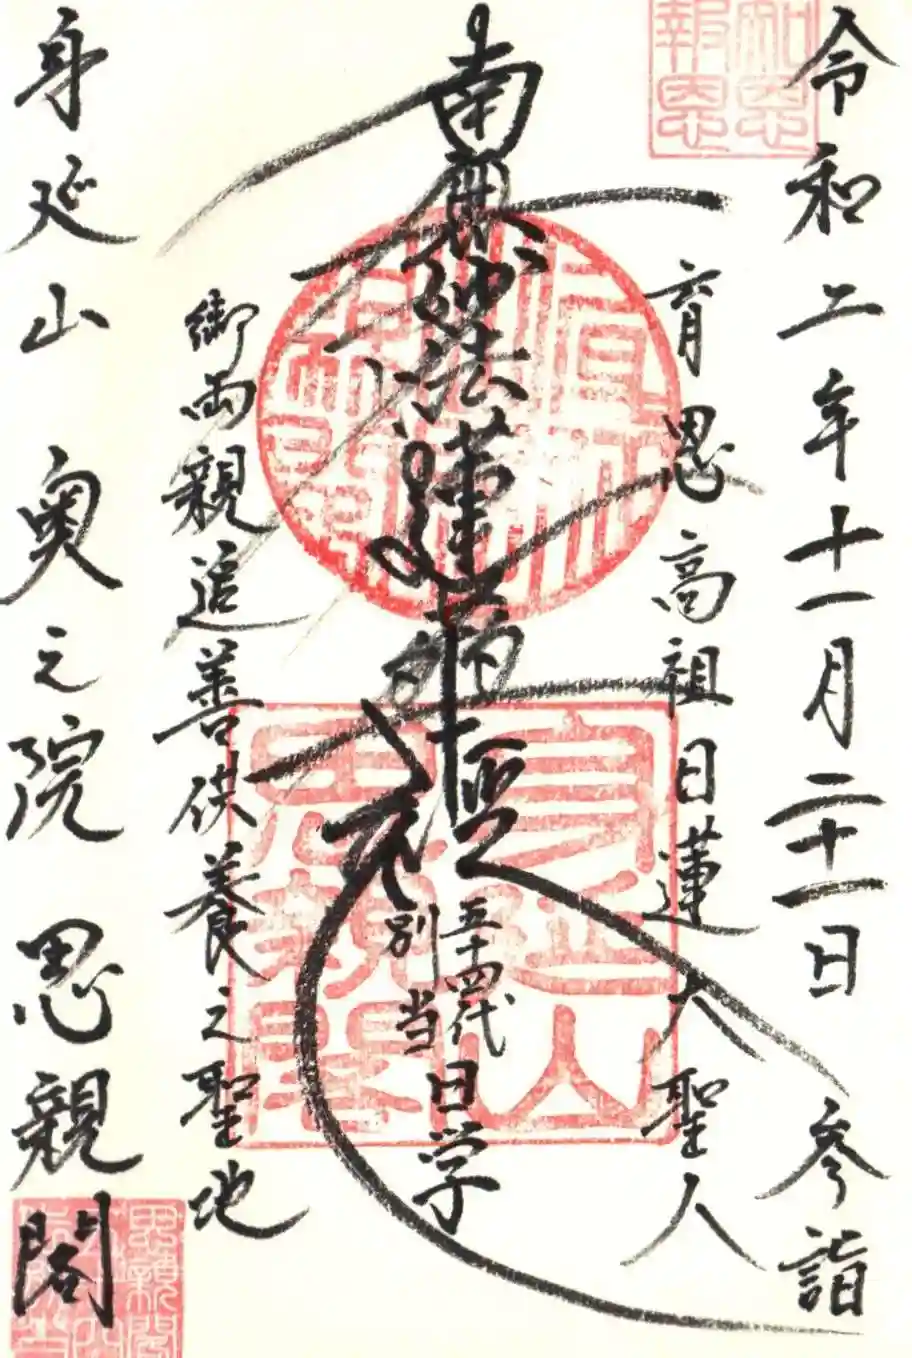 知恩
報恩
令和二年十一月二十一日 参詣
育恩高祖日蓮大聖人
南無妙法蓮華経
五十四代
別当
日学
御両親追善供養之聖地
身延山 奥之院 思親閣
身延山
思親閣